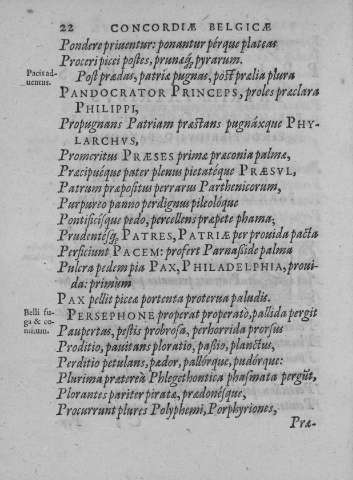 22 CONCORDIÆ BELGICÆ
Pondere priuentur: ponantur pérque plateas
Proceri picei postes, prunæq́; pyrarum.
Pacis ad-
uentus.
Post prædas, patriæ pugnas, póst prælia plura
PANDOCRATOR PRINCEPS, proles præclara
PHILIPPI,
Propugnans Patriam præstans pugnáxque PHY-
LARCHVS,
Promeritus PRÆSES primæ præconia palmæ,
Præcipuéque pater plenus pietatéque PRÆSVL,
Patrum præpositus perrarus Parthenicorum,
Purpureo panno perdignus pileolóque
Pontificísque pedo, percellens præpete phama;
Prudentésq́; PATRES, PATRIÆ per prouida pacta
Perficiunt PACEM: profert Parnasside palma
Pulcra pedem pia PAX, PHILADELPHIA, proui-
da: primùm
PAX pellit piceæ portenta proterua paludis.
Belli fu-
ga & co-
mitum.
PERSEPHONE properat properatò, pallida pergit
Paupertas, pestis probrosa, perhorrida prorsus
Proditio, pauitans ploratio, passio, planctus,
Perditio petulans, pædor, pallórque, pudórque:
Plurima præterea Phlegethontica phasmata pergũt,
Plorantes pariter piratæ, prædonésque,
Procurrunt plures Polyphemi, Porphyriones,
Præ-